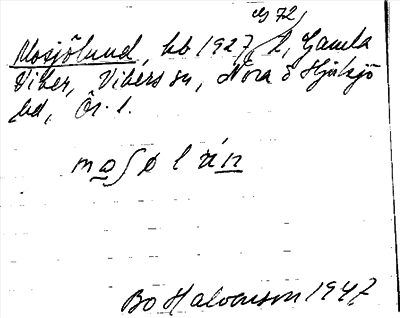 s 72,
Mosjölund, kb 1927, l, Gamla
Viker, Vikers sn, Nora o Hjulsjö
bd, Ör. l.
Bo Halvarson 1947